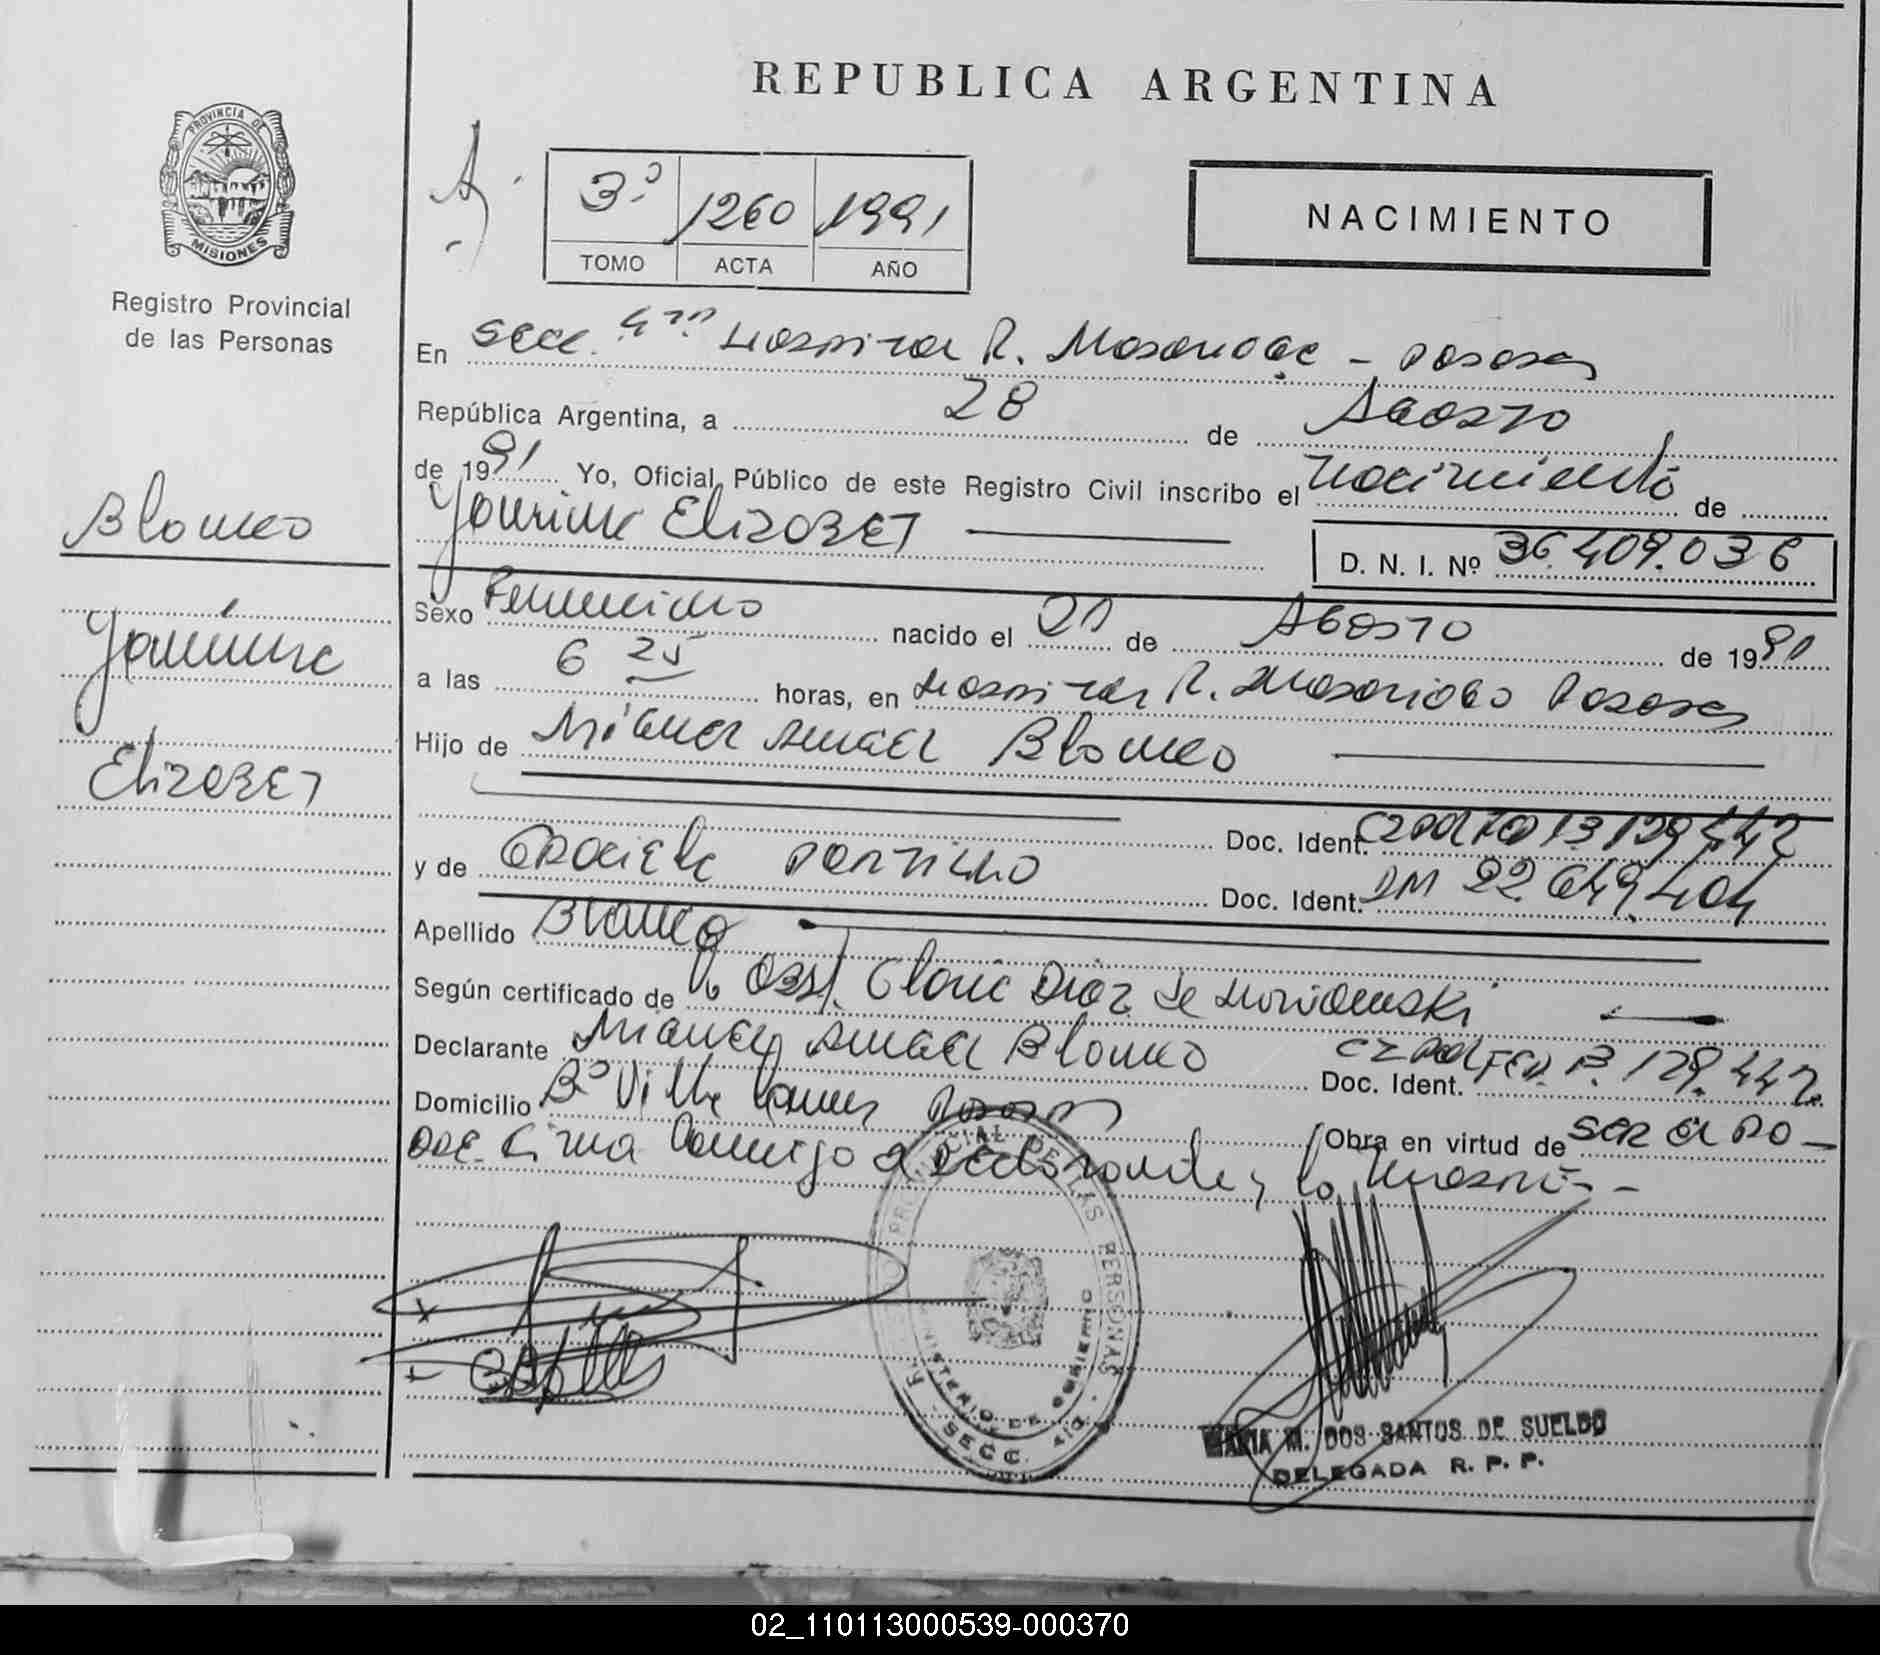 REPUBLICA ARGENTINA
PROVINCIA DE
MISIONES
Registro Provincial
de las Personas
3º 1260 1991
TOMO ACTA AÑO
NACIMIENTO
En Secc. 4ta Hospital R. Madariaga - Posadas
República Argentina, a 28 de Agosto
de 1991 Yo, Oficial Público de este Registro Civil inscribo el nacimiento de
Yanine Elizabet
D. N. I. Nº 36.409.036
Blanco
Yanine
Elizabet
Sexo Femenino nacido el 21 de Agosto de 1991
a las 6 25 horas, en Hospital R. Madariaga Posadas
Hijo de Miguel Angel Blanco
Doc. Ident. 13129442
y de Graciela Portillo Doc. Ident. DNI 22.649.404
Apellido Blanco
Según certificado de la Obst. Gloria Diaz de
Declarante Miguel Angel Blanco Doc. Ident. 13.129.442
Domicilio Bº Villa Posadas Obra en virtud de ser el pa-
dre. Firma conmigo el declarante y la
REGISTRO PROVINCIAL DE LAS PERSONAS
MINISTERIO DE GOBIERNO
SECC. 4ta
MARIA M. DOS SANTOS DE SUELDO
DELEGADA R. P. P.
02_110113000539-000370